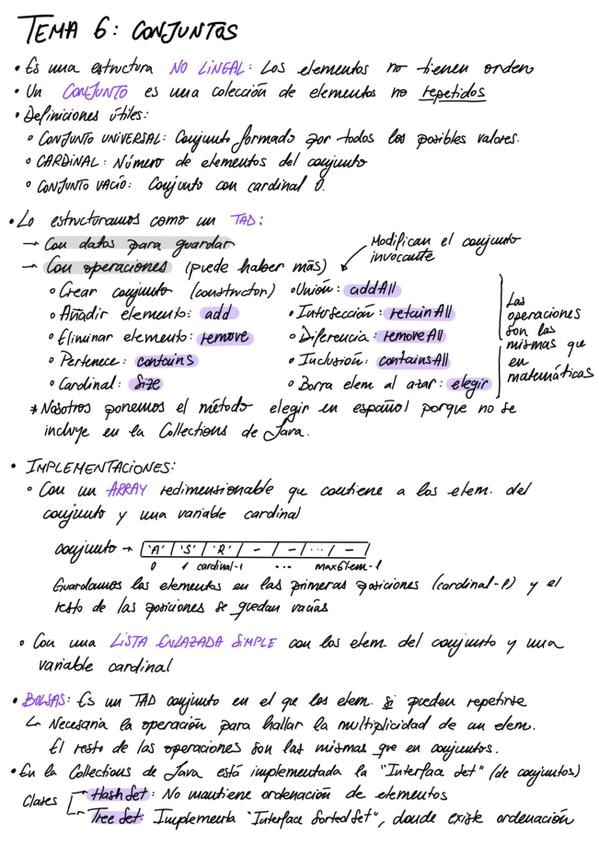 TEMA 6: CONJUNTOS
• Es una estructura NO LINEAL: Los elementos no tienen orden
• Un CONJUNTO es una colección de elementos no repetidos
• Definiciones útiles:
◦ CONJUNTO UNIVERSAL: Conjunto formado por todos los posibles valores.
◦ CARDINAL: Número de elementos del conjunto
◦ CONJUNTO VACÍO: Conjunto con cardinal 0.
• Lo estructuramos como un TAD:
→ Con datos para guardar
→ Con operaciones (puede haber más)
Modifican el conjunto
invocante
◦ Crear conjunto (constructor)
◦ Añadir elemento: add
◦ Eliminar elemento: remove
◦ Pertenece: contains
◦ Cardinal: Size
◦ Unión: addAll
◦ Intersección: retainAll
◦ Diferencia: removeAll
◦ Inclusión: containsAll
◦ Borra elem al azar: elegir
Las
operaciones
son las
mismas que
en
matemáticas
* Nosotros ponemos el método elegir en español porque no se
incluye en la Collections de Java.
• IMPLEMENTACIONES:
◦ Con un ARRAY redimensionable que contiene a los elem. del
conjunto y una variable cardinal
conjunto → | 'A' | 'S' | 'R' | - | - | ... | - |
0 1 cardinal-1 ... maxElem-1
Guardamos los elementos en las primeras posiciones (cardinal-1) y el
resto de las posiciones se quedan vacías
◦ Con una LISTA ENLAZADA SIMPLE con los elem. del conjunto y una
variable cardinal
• BOLSAS: Es un TAD conjunto en el que los elem. si pueden repetirse
↳ Necesaria la operación para hallar la multiplicidad de un elem.
El resto de las operaciones son las mismas que en conjuntos.
• En la Collections de Java está implementada la "Interface Set" (de conjuntos)
Clases
→ Hash Set: No mantiene ordenación de elementos
→ Tree Set: Implementa "Interface Sorted Set", donde existe ordenación